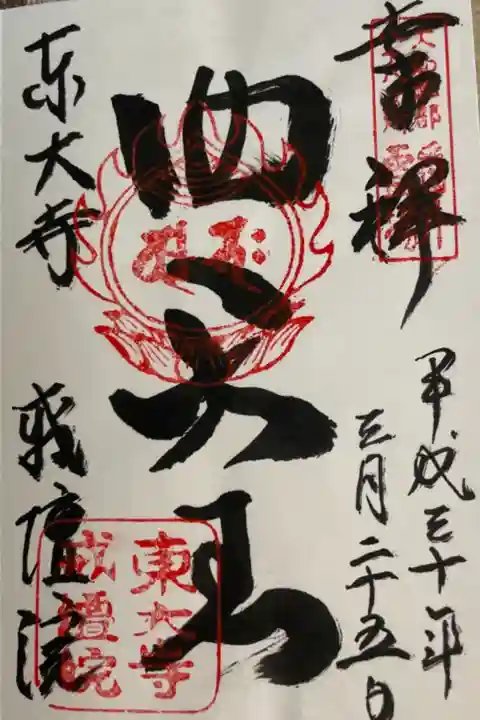 奉拝
平成三十年
三月二十五日
四天王
東大寺 戒壇院
東大寺
戒壇院